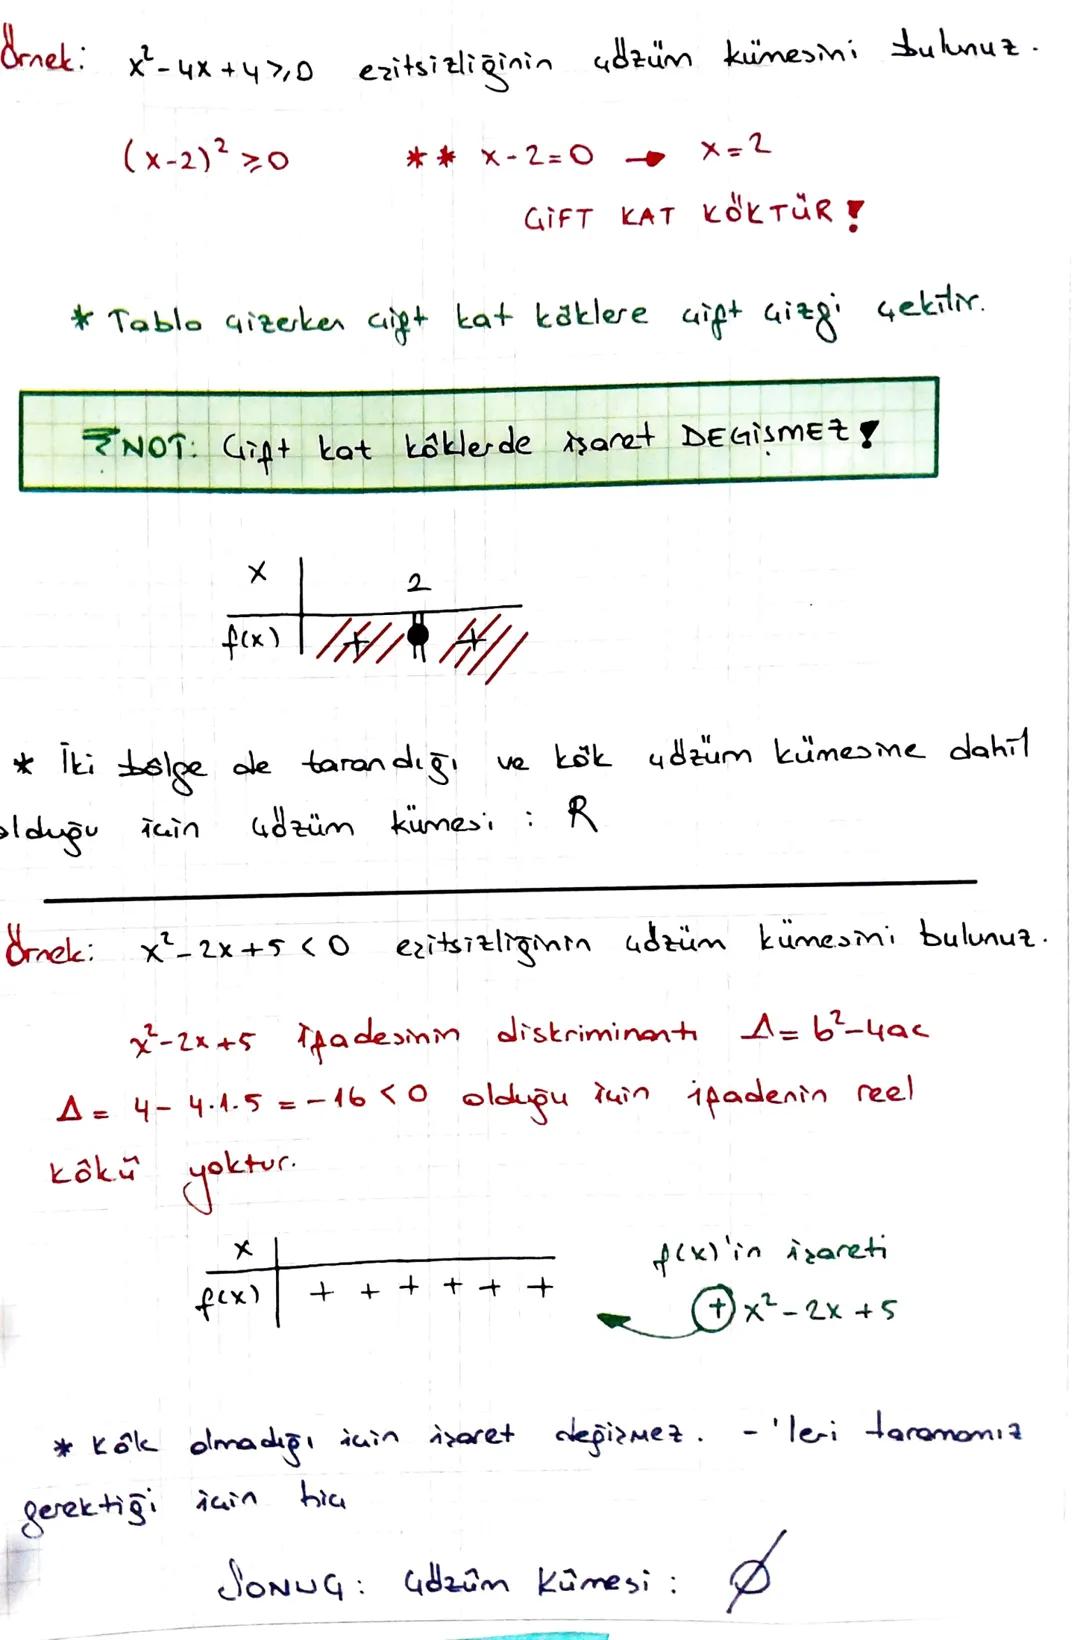 Örnek: x²-4x+4≥0 eşitsizliğinin çözüm kümesini bulunuz.
(x-2)² ≥0 ** x-2=0 → x=2
ÇİFT KAT KÖKTÜR!
* Tablo çizerken çift kat köklere çift çizgi çekilir.
NOT: Çift kat köklerde işaret DEĞİŞMEZ!
x 2
f(x) + +
* İki bölge de tarandığı ve kök çözüm kümesine dahil
olduğu için çözüm kümesi : R
Örnek: x²-2x+5 <0 eşitsizliğinin çözüm kümesini bulunuz.
x²-2x+5 ifadesinin diskriminantı Δ= b²-4ac
Δ= 4- 4.1.5 = -16 <0 olduğu için ifadenin reel
kökü yoktur.
x
f(x) + + + + + +
f(x)'in işareti
+ x²-2x+5
* Kök olmadığı için işaret değişmez. -'leri taramamız
gerektiği için hiç
SONUÇ: Çözüm Kümesi : ∅